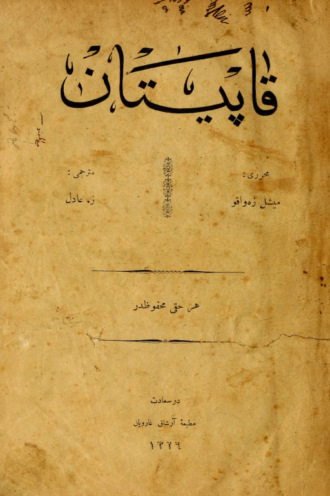 قاپیتان
محرری :
میشل زه‌واقو
مترجمی :
ز. عادل
هر حقی محفوظدر
در سعادت
مطبعهٔ آرشاق غارویان
١٣٢٦